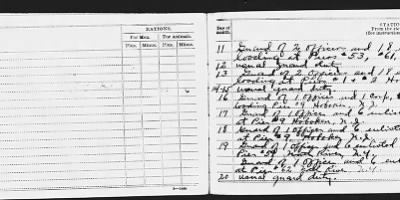 RATIONS.
For Men. For animals.
Plus. Minus. Plus. Minus.
Day of month.
STATION
From the
(See instruction
11 Guard of 2 Officers and 18
loading at Piers #53, #61,
12 usual guard duty
13 Guard of 2 Officers and 18
loading at Piers #1 + #2
14/15 usual guard duty.
16 Guard of 1 Officer and 1 Corp,
loading Pier #9 Hoboken, N.J.
17 Guard of 1 Officer and 6 enlisted
at Pier #9 Hoboken N.J.
18 Guard of 1 Officer and 6 enlisted
at Pier #9 Hoboken N.J.
19 Guard of 1 Officer and 6 enlisted
Pier 59 North River, N.Y.
Guard of 1 Officer and 6
at Pier River, N.Y.
20 usual guard duty.